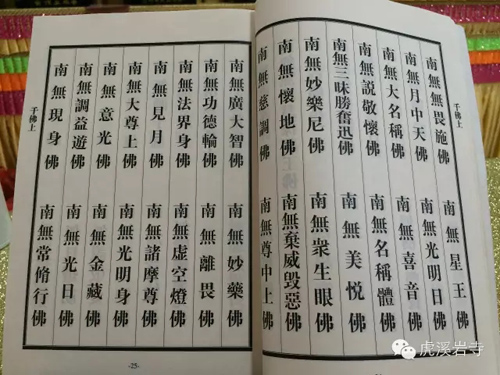 千佛上
南無無畏施佛 南無星王佛
南無月中天佛 南無光明日佛
南無大名稱佛 南無喜音佛
南無説敬懷佛 南無名稱體佛
南無三昧勝奮迅佛 南無美悅佛
南無妙樂尼佛 南無衆生眼佛
南無懷地佛 南無棄威毀惡佛
南無慈調佛 南無尊中上佛
南無廣大智佛 南無妙藥佛
南無功德輪佛 南無離畏佛
南無法界身佛 南無虛空燈佛
南無見月佛 南無諸摩尊佛
南無大尊上佛 南無光明身佛
南無意光佛 南無金藏佛
南無調益遊佛 南無光日佛
南無現身佛 南無常脩行佛
千佛上
-25-
虎溪岩寺